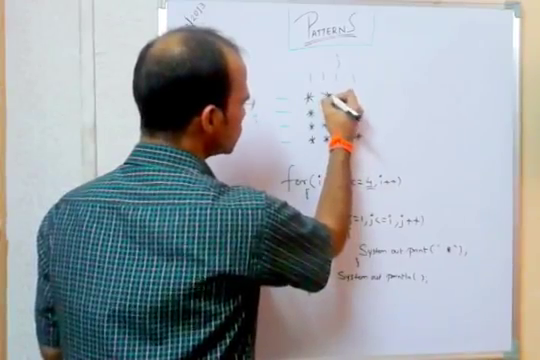 /2013
PATTERNS
* *
*
* *
* * *
for(i <=4, i++)
=1, j<=i, j++)
System out print(" *"),
}
System out println( ),